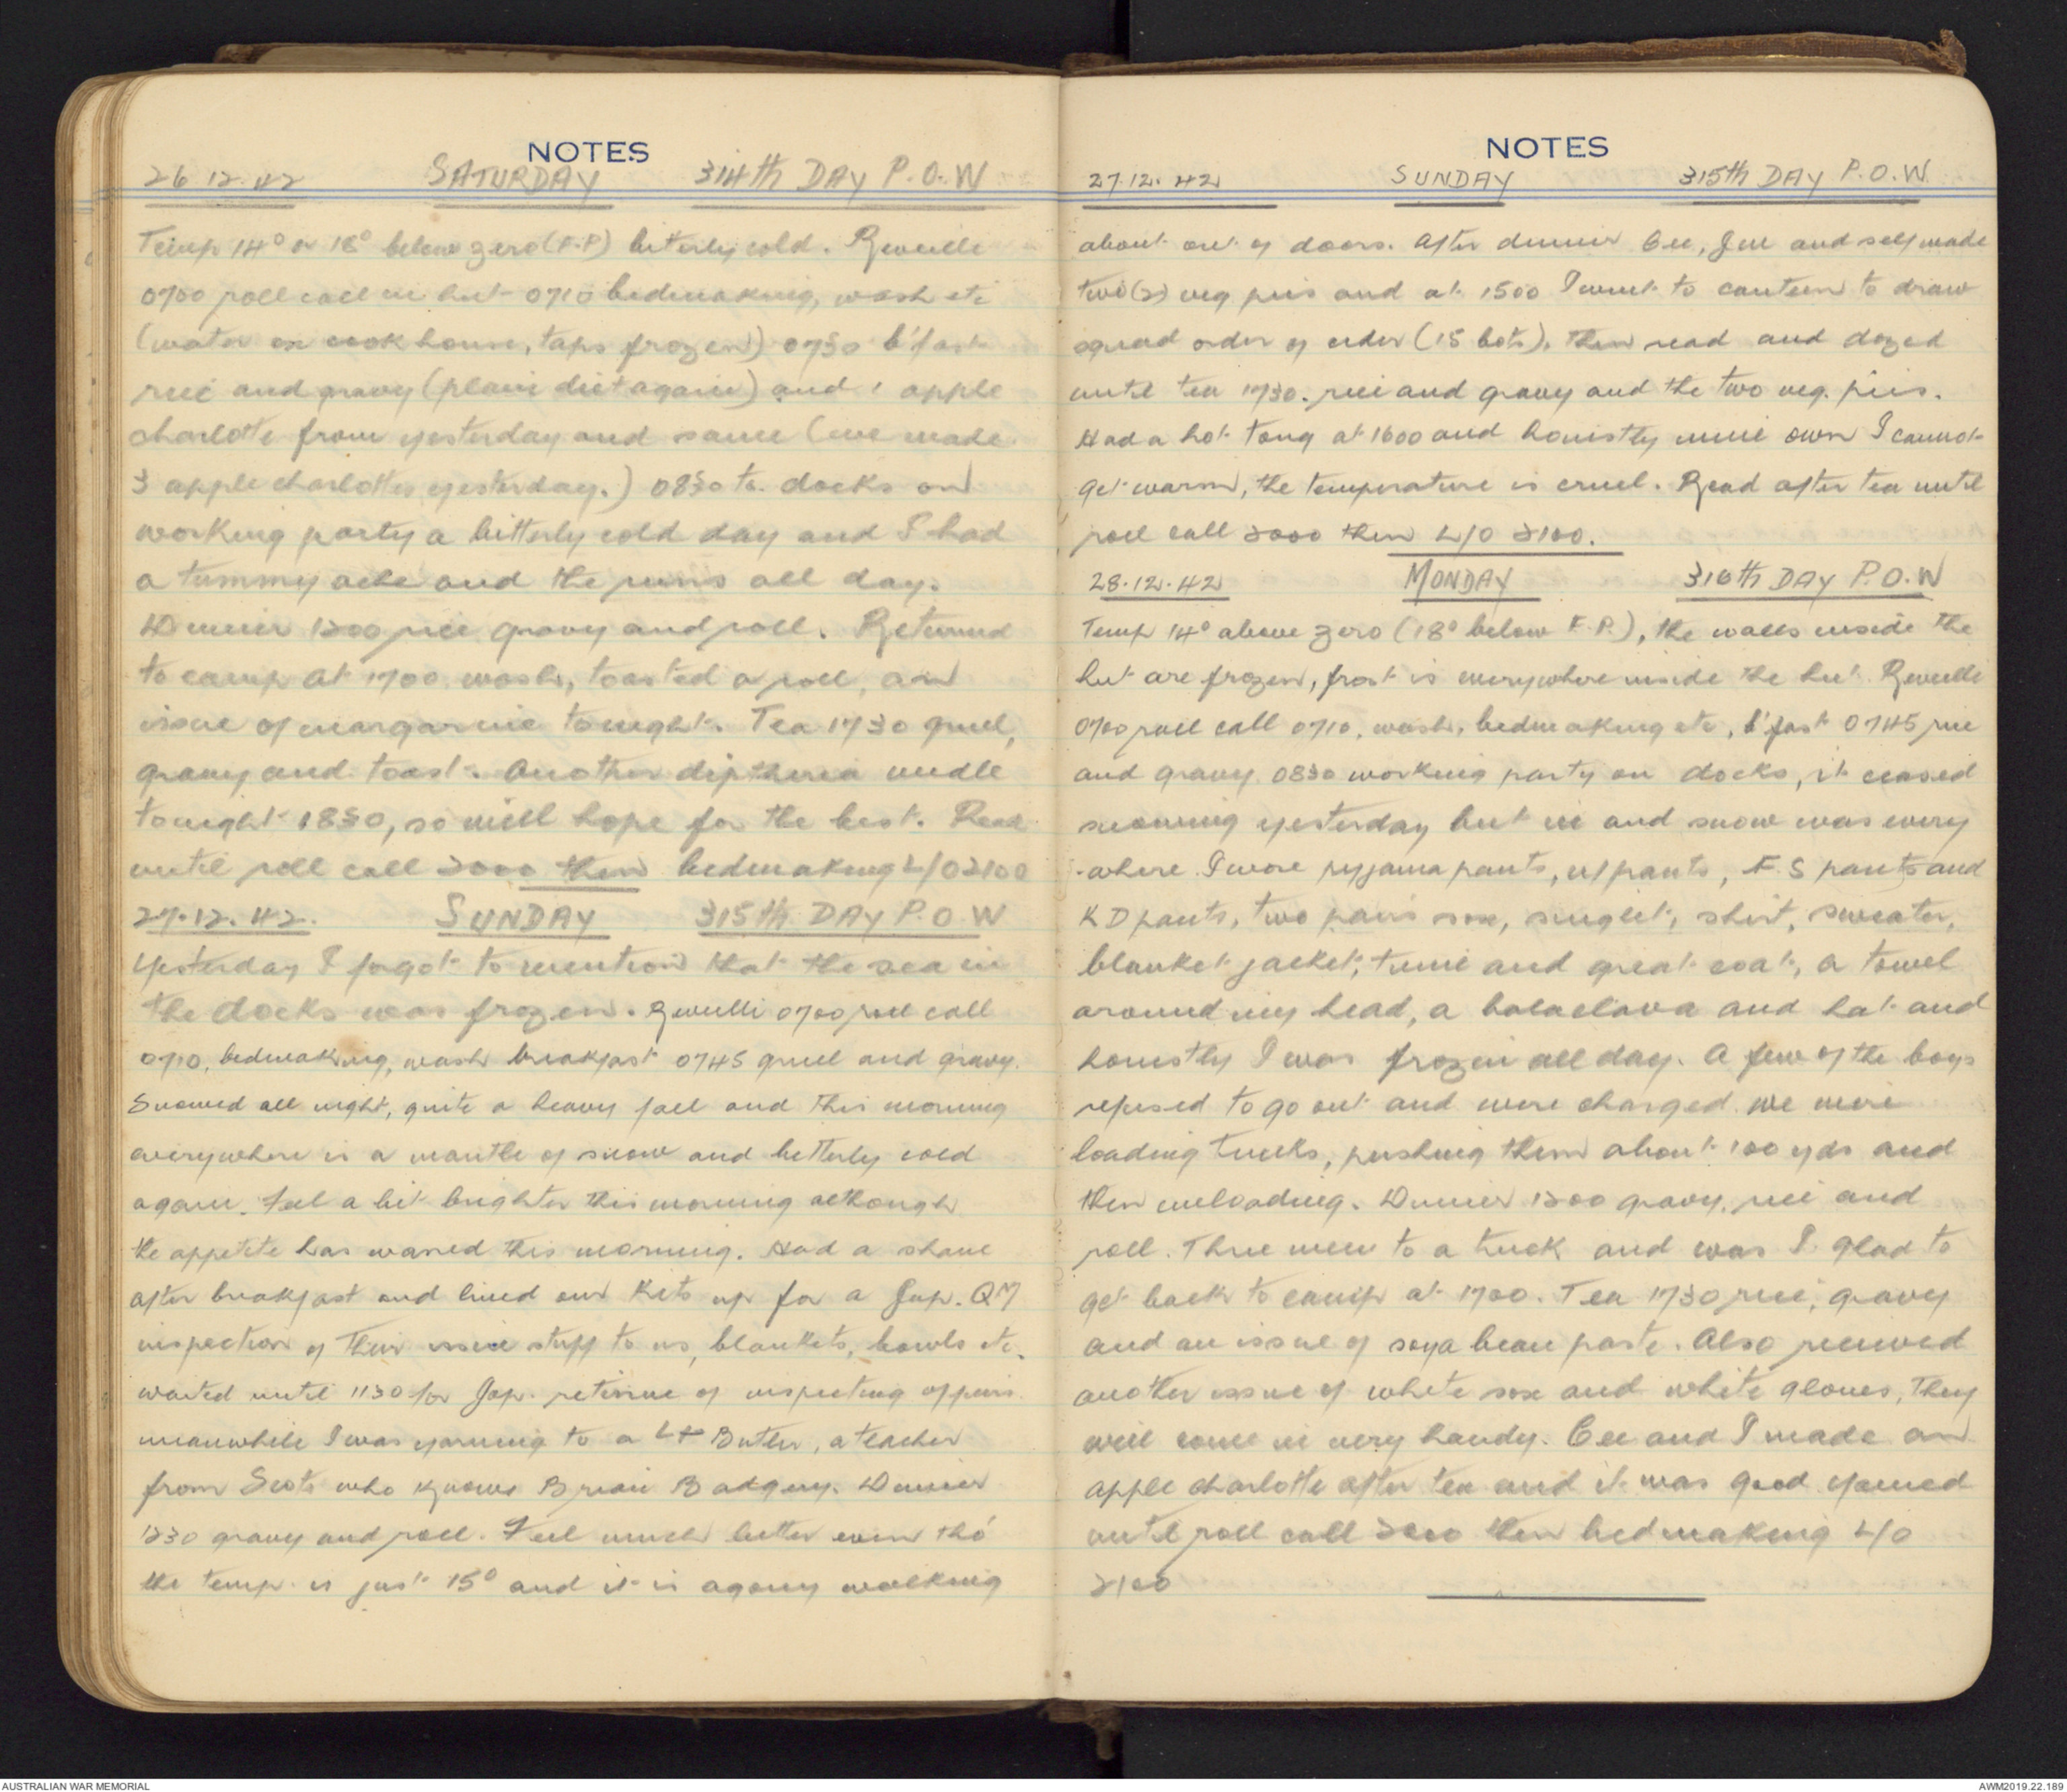 NOTES
26.12.42 SATURDAY 314th DAY P.O.W
Temp 14° or 18° below zero (F.P) bitterly cold. Reveille
0700 roll call in hut 0710 bedmaking, wash etc
(water ex cook house, taps frozen) 0730 b'fast
rice and gravy (plain diet again) and 1 apple
charlotte from yesterday and sauce (we made
3 apple charlottes yesterday.) 0830 to docks on
working party a bitterly cold day and I had
a tummy ache and the runs all day.
Dinner 1200 rice gravy and roll. Returned
to camp at 1700 wash, toasted a roll, an
issue of margarine tonight. Tea 1730 gruel,
gravy and toast. Another diptheria needle
tonight 1830, so will hope for the best. Read
until roll call 2000 then bedmaking L/O 2100
27.12.42. SUNDAY 315th DAY P.O.W
Yesterday I forgot to mention that the sea in
the docks was frozen. Reveille 0700 roll call
0710, bedmaking, wash breakfast 0745 gruel and gravy.
Snowed all night, quite a heavy fall and this morning
everywhere is a mantle of snow and bitterly cold
again. Feel a bit brighter this morning although
the appetite has waned this morning. Had a shave
after breakfast and lined our kits up for a Jap. QM
inspection of their issue stuff to us, blankets, bowls etc.
waited until 1130 for Jap. retinue of inspecting officers
meanwhile I was yarning to a Lt Butler, a teacher
from Scots who knows Brian Badgery. Dinner
1230 gravy and roll. Feel much better even tho'
the temp. is just 15° and it is agony walking
NOTES
27.12.42 SUNDAY 315th DAY P.O.W.
about out of doors. After dinner Cec, Jim and self made
two (2) veg pies and at 1500 I went to canteen to draw
squad order of cider (15 bots), then read and dozed
until tea 1730. rice and gravy and the two veg. pies.
Had a hot tong at 1600 and honestly mine own I cannot
get warm, the temperature is cruel. Read after tea until
roll call 2000 then L/O 2100.
28.12.42 MONDAY 316th DAY P.O.W
Temp 14° above zero (18° below F.P.), the walls inside the
hut are frozen, frost is everywhere inside the hut. Reveille
0700 roll call 0710, wash, bedmaking etc, b'fast 0745 rice
and gravy. 0830 working party on docks, it ceased
snowing yesterday but ice and snow was every
-where. I wore pyjama pants, u/pants, F.S pants and
KD pants, two pairs sox, singlet, shirt, sweater,
blanket jacket, tunic and great coat, a towel
around my head, a balaclava and hat and
honestly I was frozen all day. A few of the boys
refused to go out and were charged. We were
loading trucks, pushing them about 100 yds and
then unloading. Dinner 1200 gravy, rice and
roll. Three men to a truck and was I glad to
get back to camp at 1700. Tea 1730 rice, gravy
and an issue of soya bean paste. Also received
another issue of white sox and white gloves, they
will come in very handy. Cec and I made an
apple charlotte after tea and it was good. yarned
until roll call 2000 then bedmaking L/O
2100
AUSTRALIAN WAR MEMORIAL
AWM2019.22.189